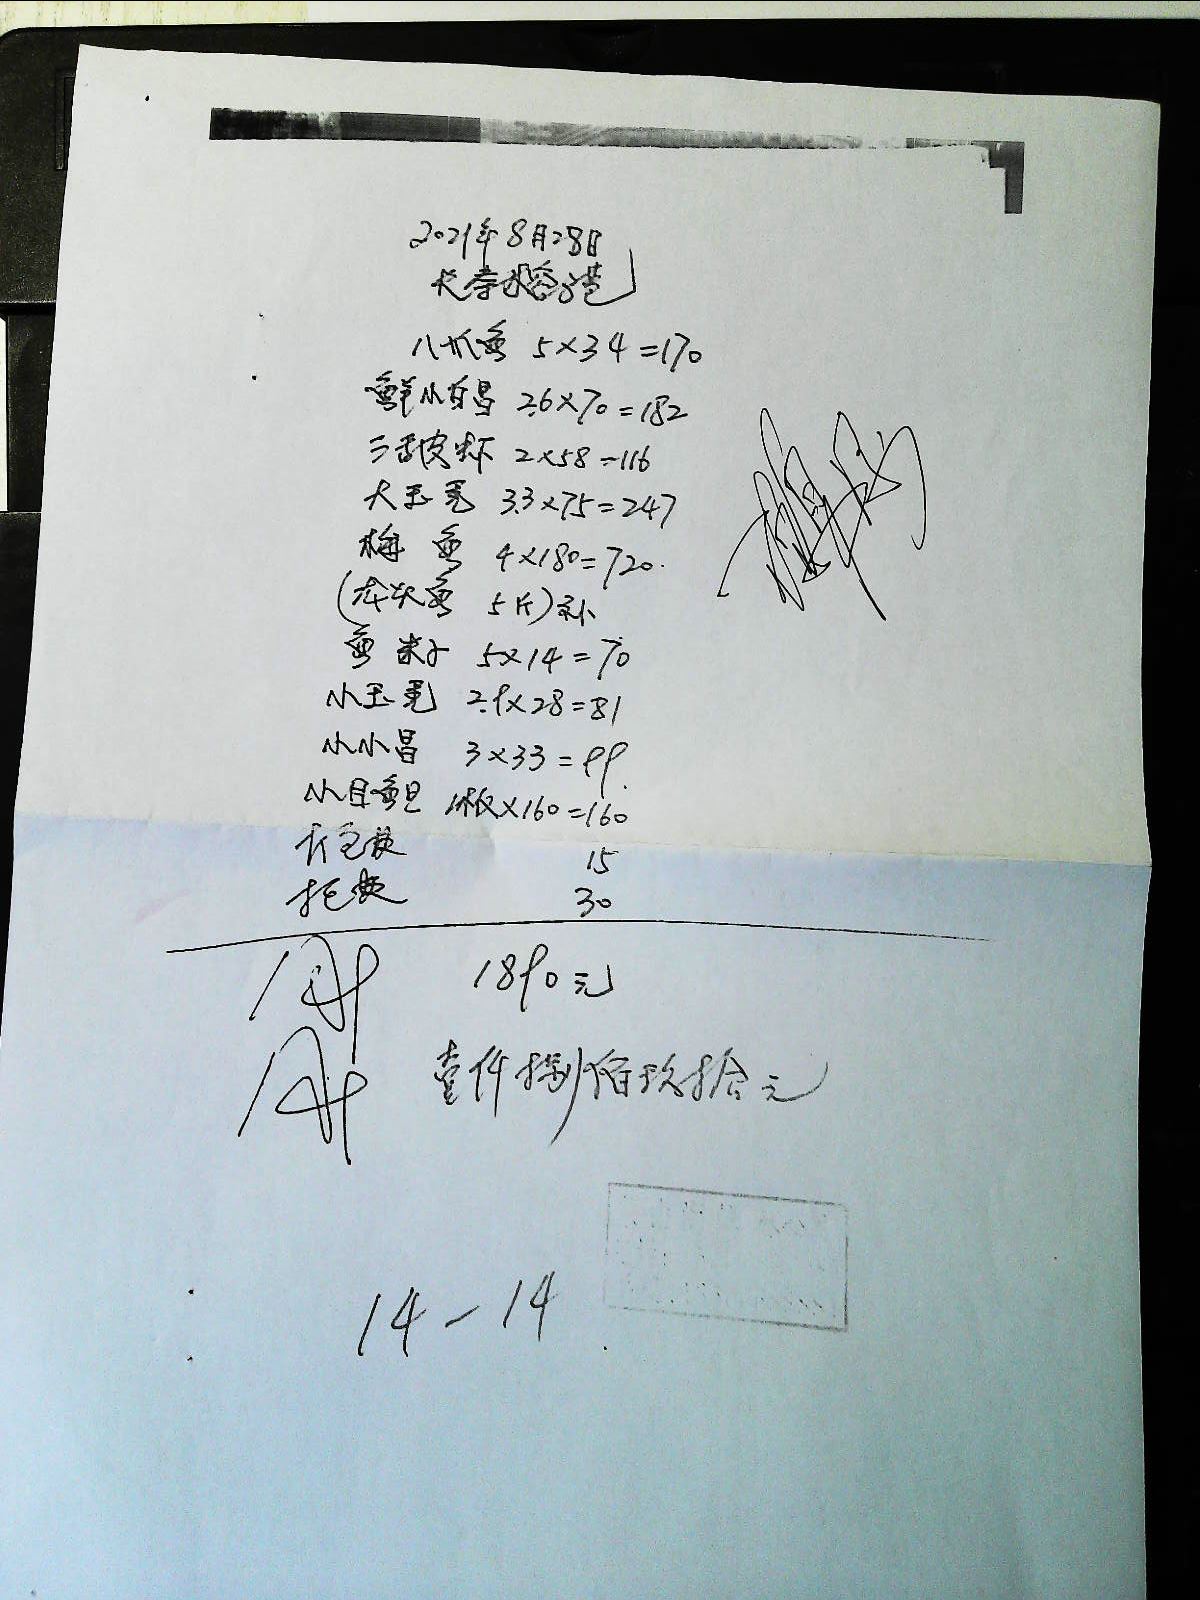 2021年8月28日
八爪鱼 5×34=170
鲜小白昌 2.6×70=182
皮虾 2×58=116
大玉秃 3.3×75=247
梅鱼 4×180=720.
(龙头鱼 5斤)补
鱼籽 5×14=70
小玉秃 2.9×28=81
小小昌 3×33=99.
小目鱼旦 1板×160=160
打包费 15
托费 30
1890元
壹仟捌佰玖拾元
14-14